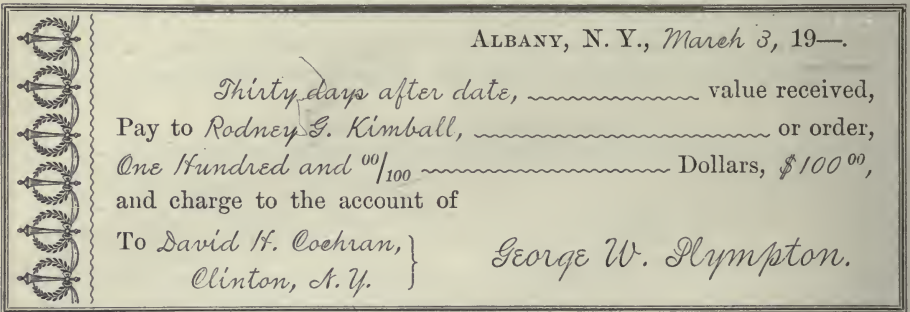 ALBANY, N. Y., March 3, 19—.
Thirty days after date, value received,
Pay to Rodney G. Kimball, or order,
One Hundred and 00/100 Dollars, $100 00,
and charge to the account of
To David H. Cochran,
Clinton, N. Y.
George W. Plympton.